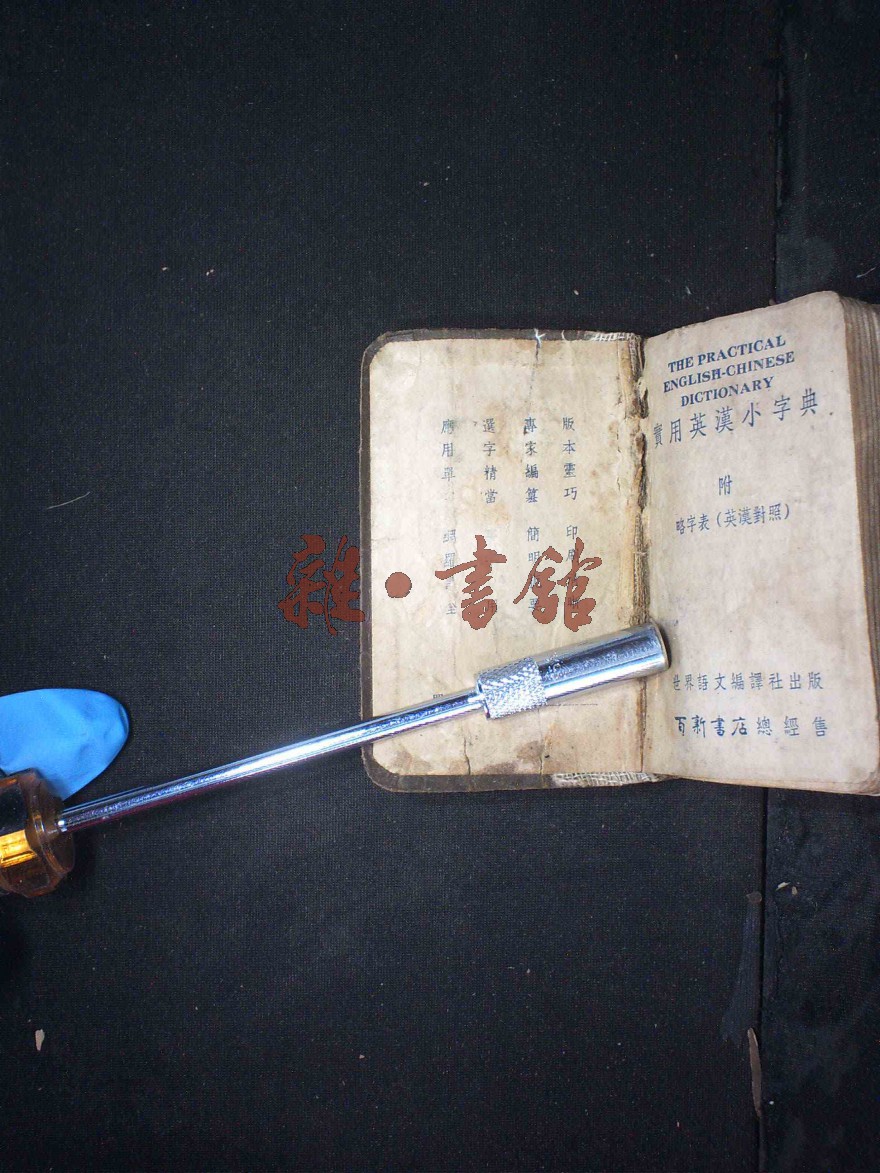 版本靈巧 印
專家編纂 簡明 要
選字精當
應用單 網羅 至
雜·書館
THE PRACTICAL
ENGLISH-CHINESE
DICTIONARY
實用英漢小字典
附
略字表(英漢對照)
世界語文編譯社出版
百新書店總經售